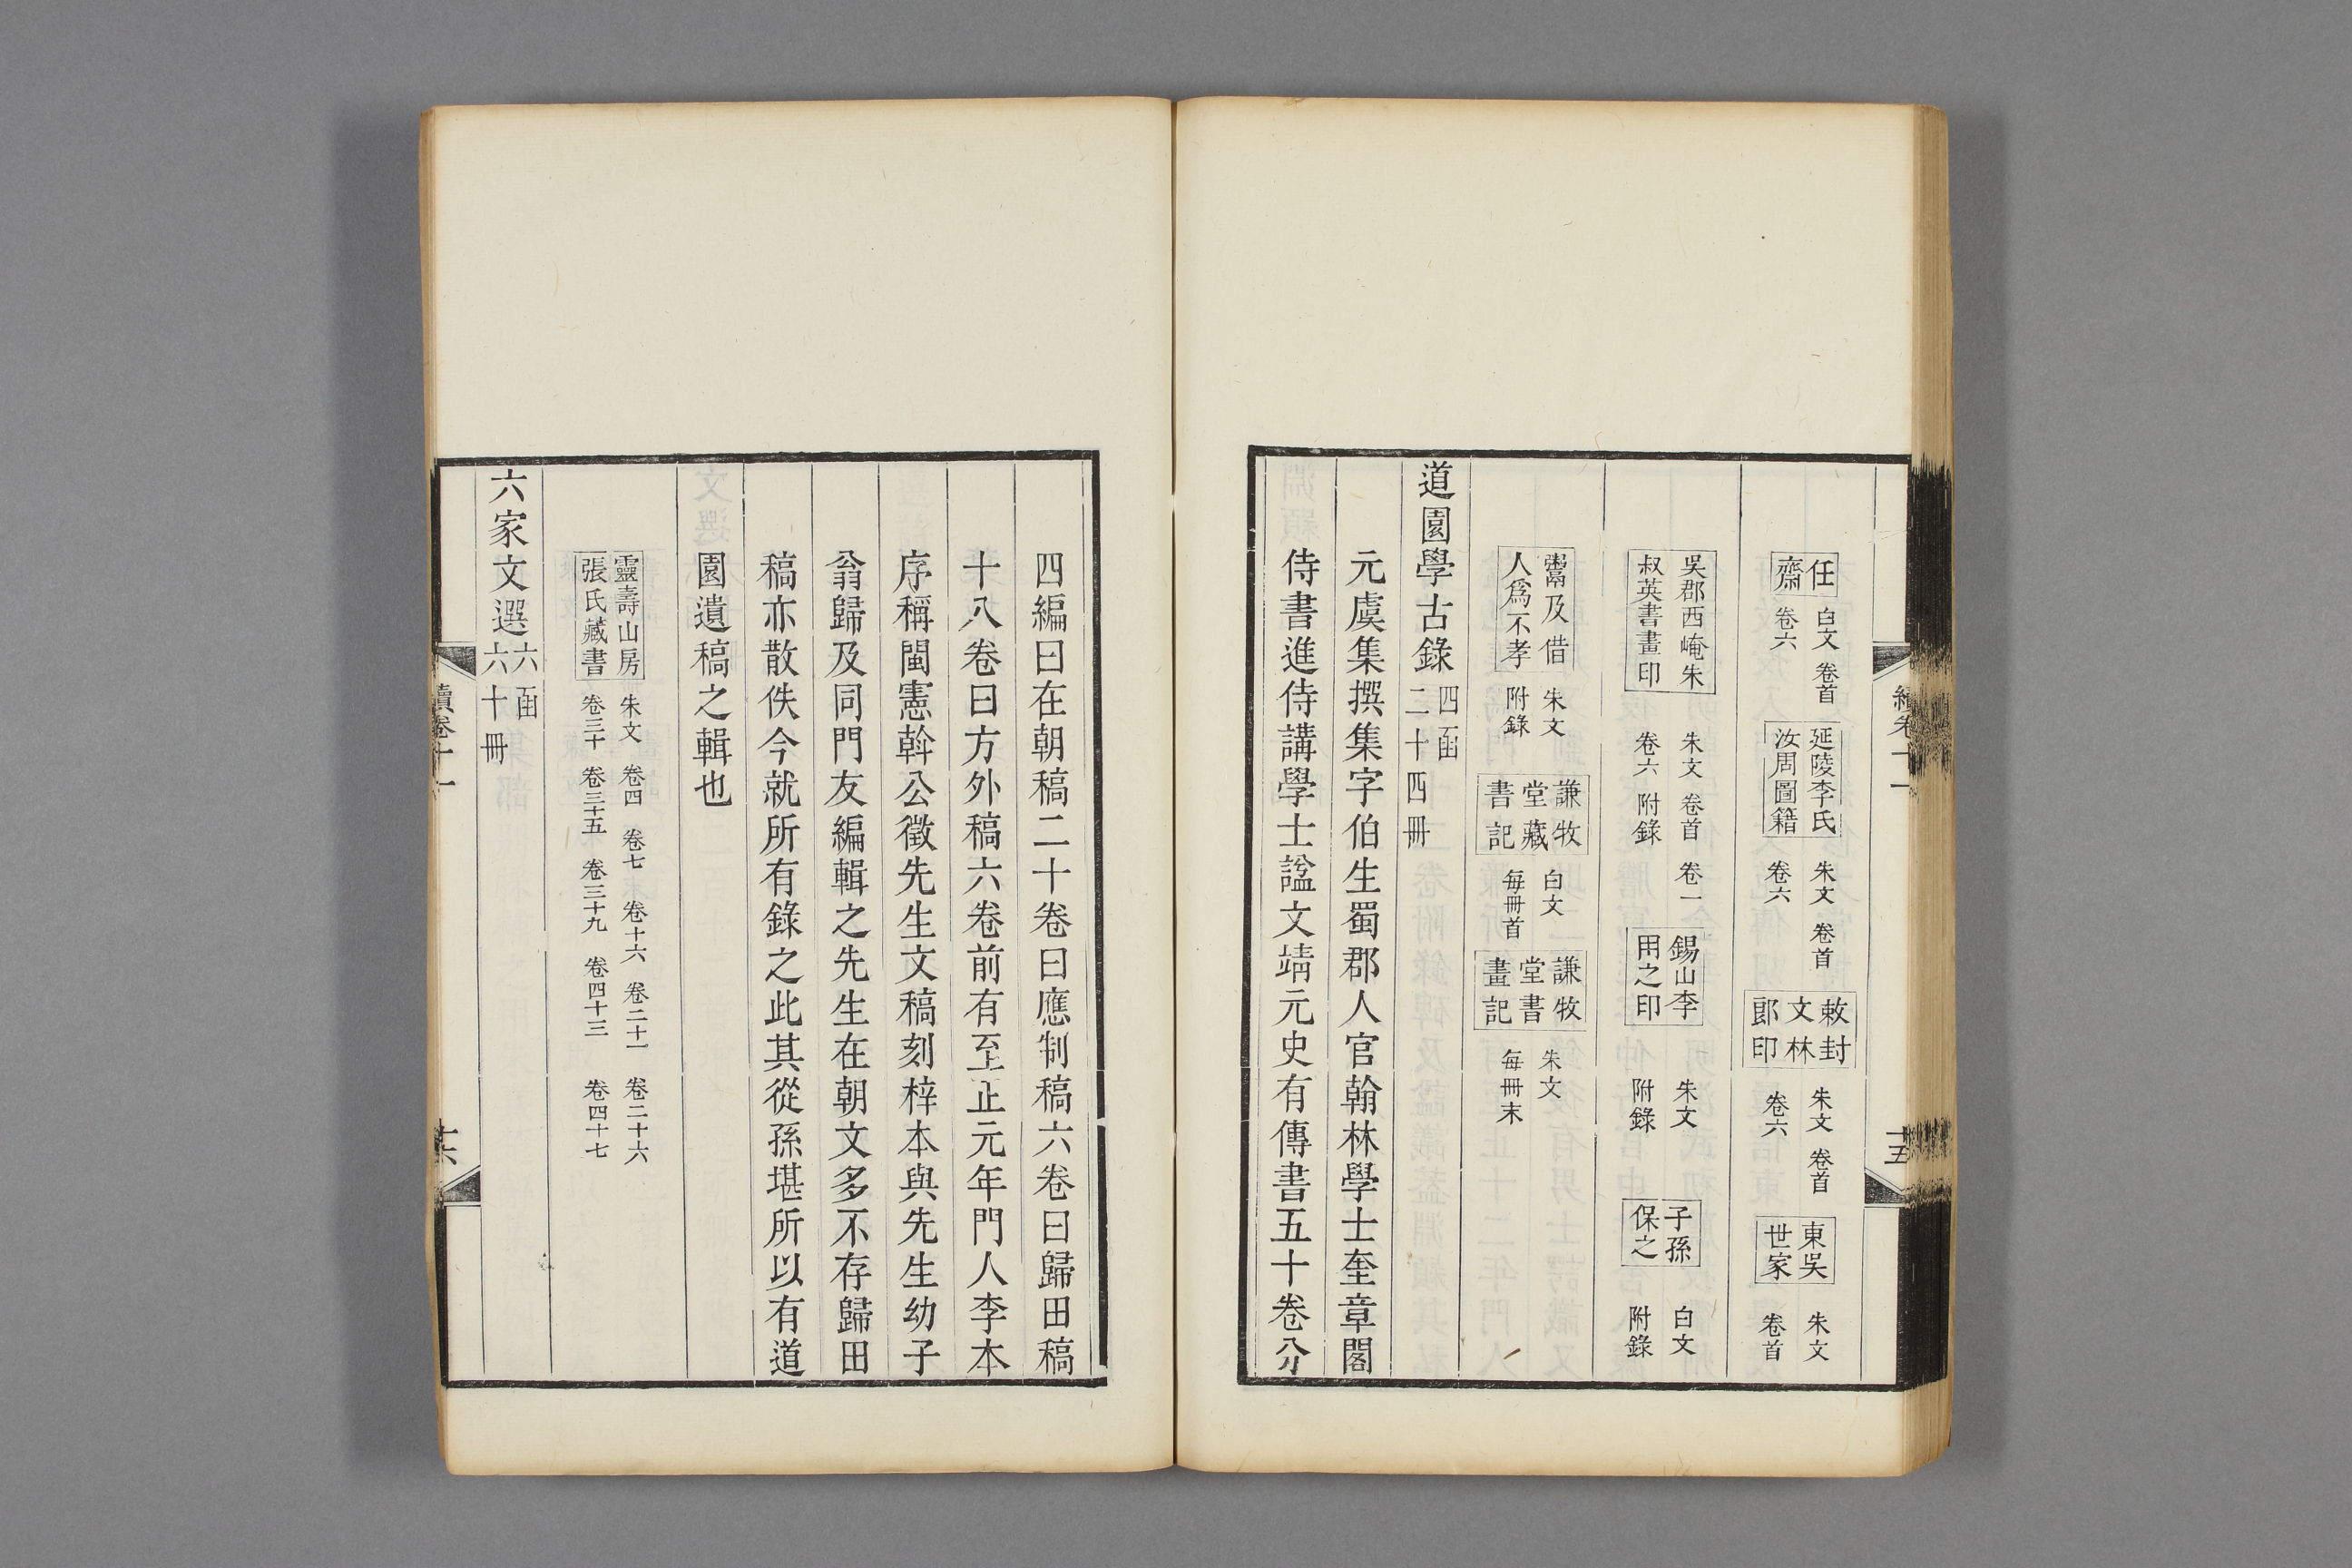 續卷十一
十五
任齋 白文 卷首 卷六 延陵李氏汝周圖籍 朱文 卷首 卷六 敕封文林郎印 朱文 卷首 卷六 東吳世家 朱文 卷首
吳郡西崦朱叔英書畫印 朱文 卷首 卷一 卷六 附錄 錫山李用之印 朱文 附錄 子孫保之 白文 附錄
鬻及借人爲不孝 朱文 附錄 謙牧堂藏書記 白文 每冊首 謙牧堂書畫記 朱文 每冊末
道園學古錄 四函 二十四冊
元虞集撰集字伯生蜀郡人官翰林學士奎章閣
侍書進侍講學士諡文靖元史有傳書五十卷分
四編曰在朝稿二十卷曰應制稿六卷曰歸田稿
十八卷曰方外稿六卷前有至正元年門人李本
序稱閩憲斡公徵先生文稿刻梓本與先生幼子
翁歸及同門友編輯之先生在朝文多不存歸田
稿亦散佚今就所有錄之此其從孫堪所以有道
園遺稿之輯也
靈壽山房張氏藏書 朱文 卷四 卷七 卷十六 卷二十一 卷二十六 卷三十 卷三十五 卷三十九 卷四十三 卷四十七
六家文選 六函 六十冊
續卷十一
十六